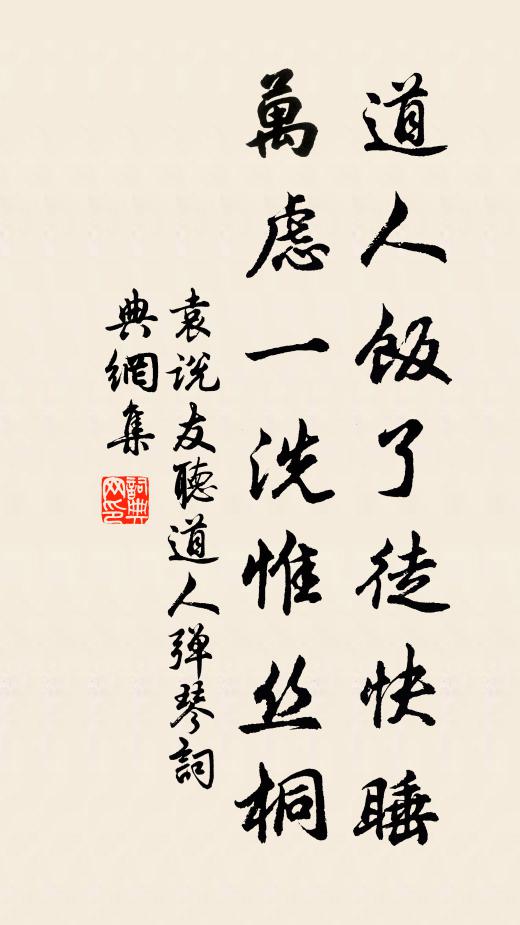 道人飯了徒快睡
萬慮一洗惟丝桐
袁説友聽道人弹琴詞
典網集
詞典网印